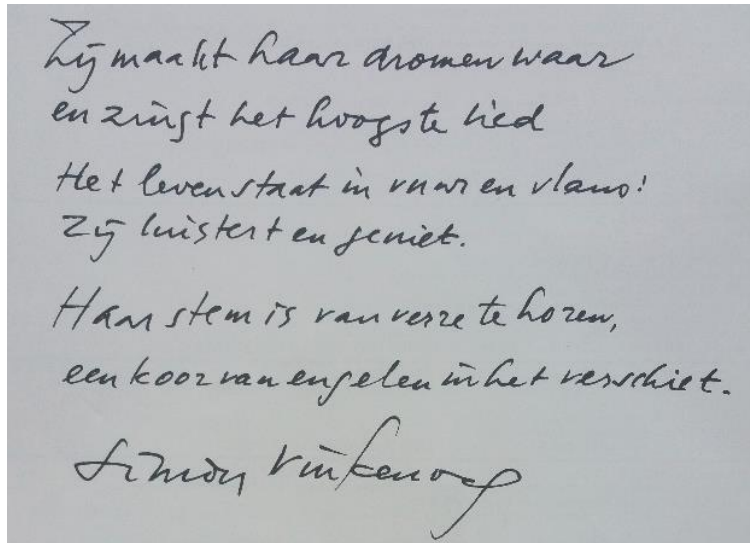 Zij maakt haar dromen waar
en zingt het hoogste lied
Het leven staat in vuur en vlam!
Zij luistert en geniet.
Haar stem is van verre te horen,
een koor van engelen in het verschiet.
Simon Vinkenoog